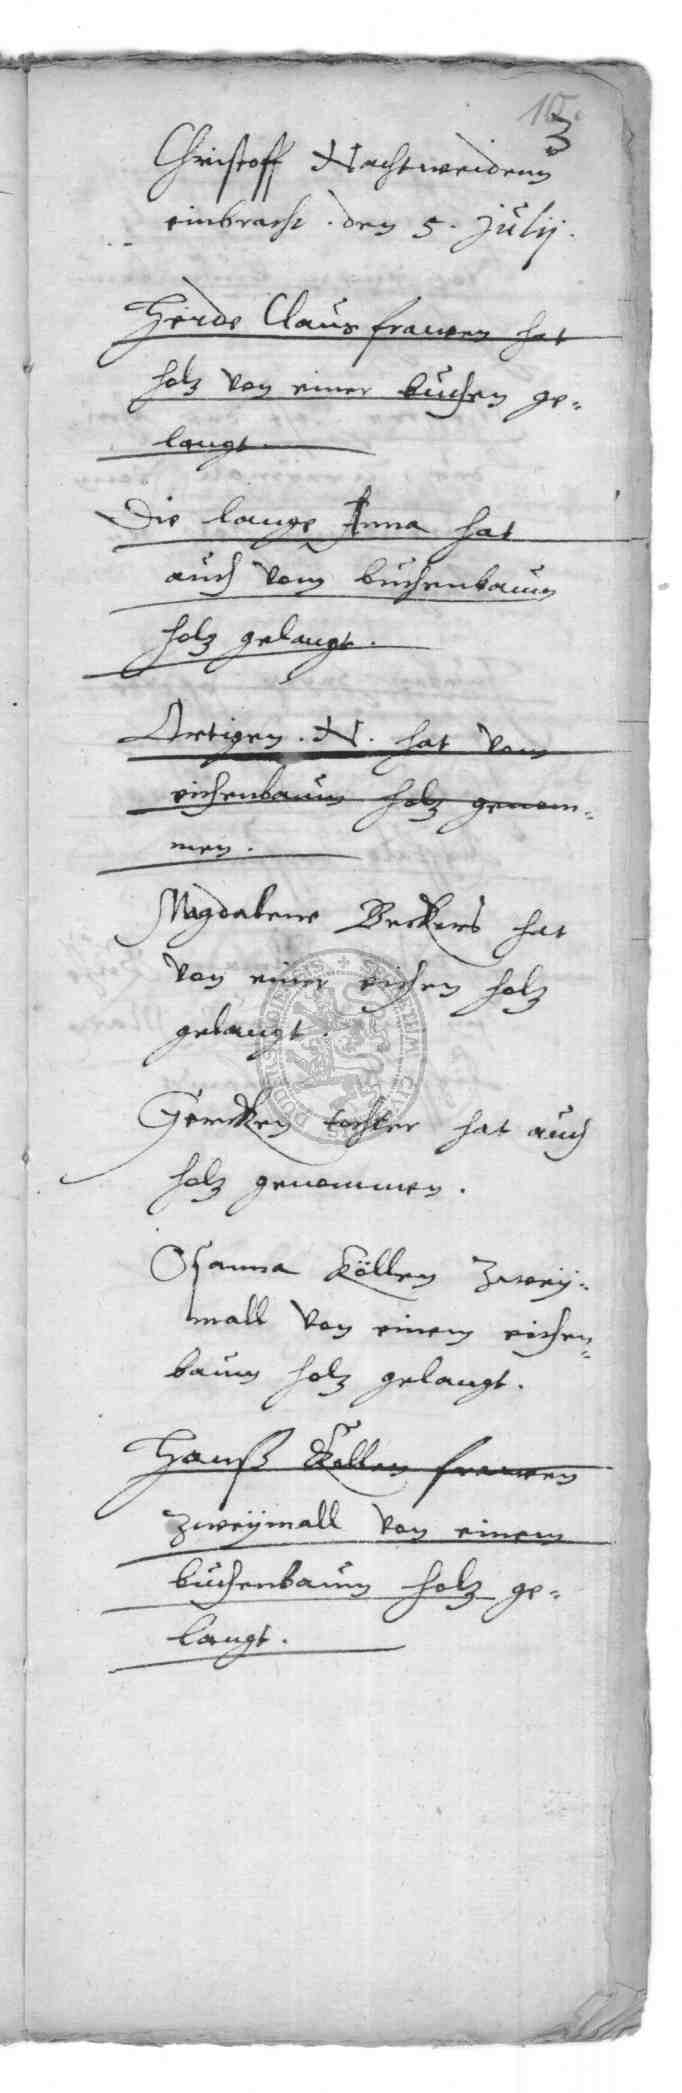 10.
3
Christoff Nachtweidenn
einbracht. den 5. Julij.
Herde Claus frauwen hat
holz von einer buchen ge-
langt.
Die lange Anna hat
auch vom buchenbaum
holz gelangt.
Ortigen. N. hat vom
eichenbaum holz genom-
men.
Magdalene Beckers hat
von einer eichen holz
gelangt.
Gercken tochter hat auch
holz genommen.
Osanna Köllen zweij-
mall von einem eichen-
baum holz gelangt.
Hanß Köllen frauwen
zweijmall von einem
buchenbaum holz ge-
langt.